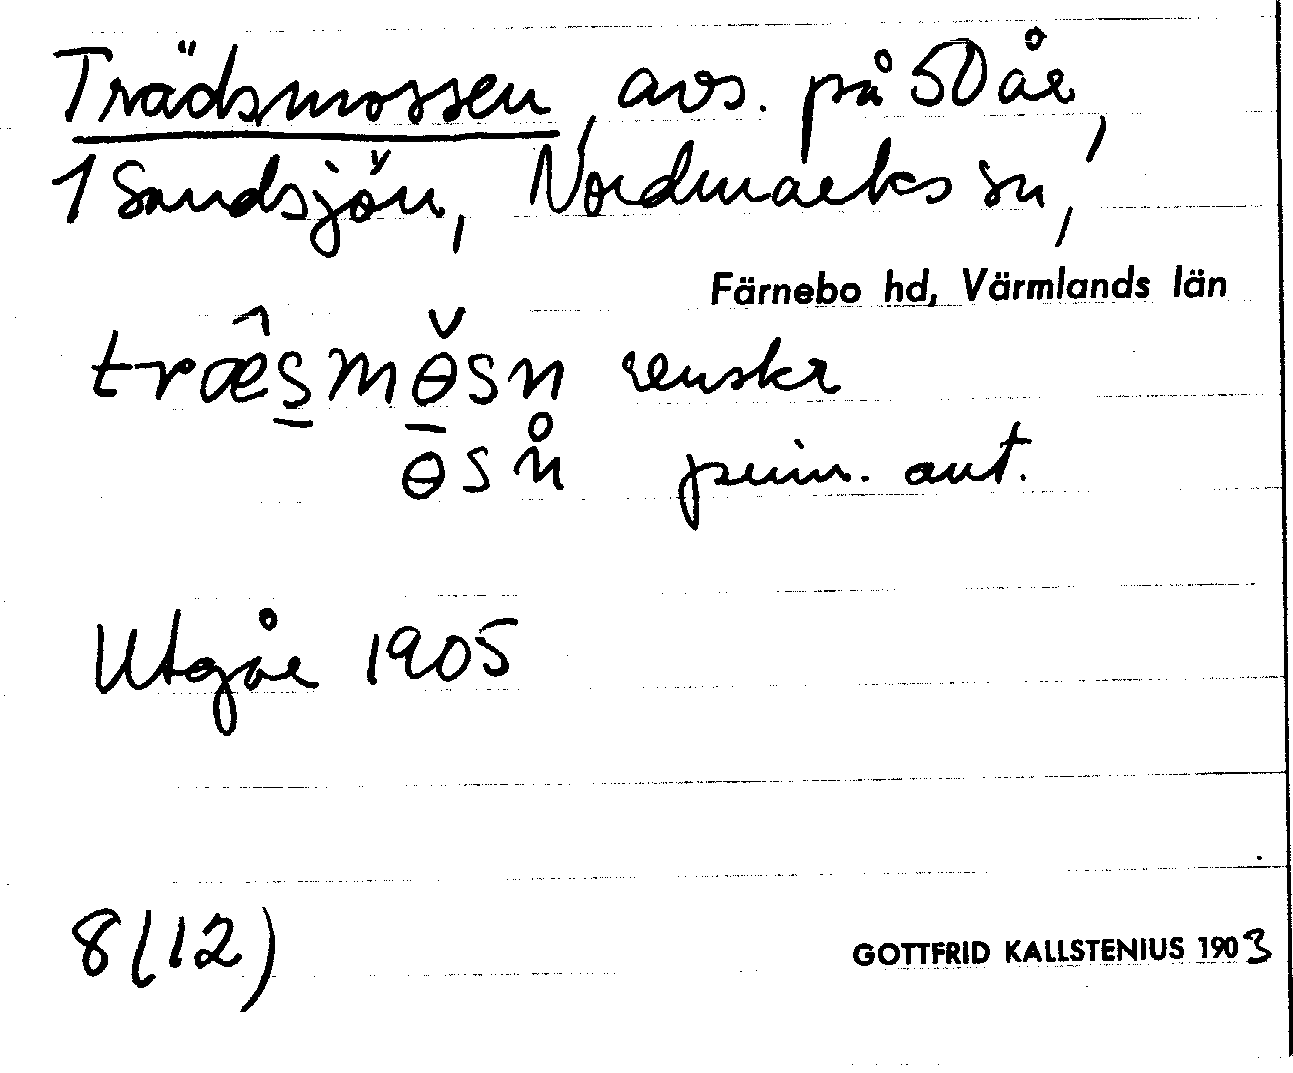 Trädsmossen, avs. på 50 år,
1 Sandsjön, Nordmarks sn,
Färnebo hd, Värmlands län
træ̂s̠mɵ̠̌sn renskr
ɵsn̊ prim. ant.
Utgår 1905
8(12)
GOTTFRID KALLSTENIUS 1903